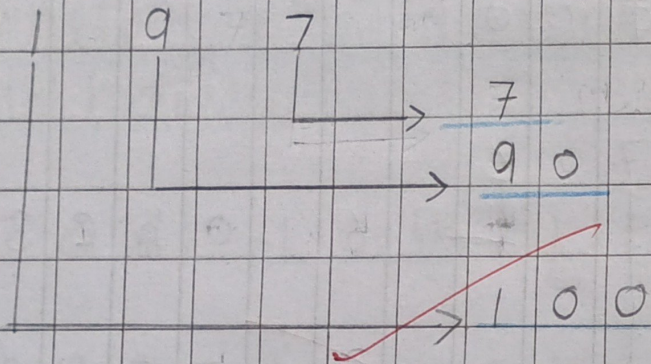 1 9 7
7
90
100